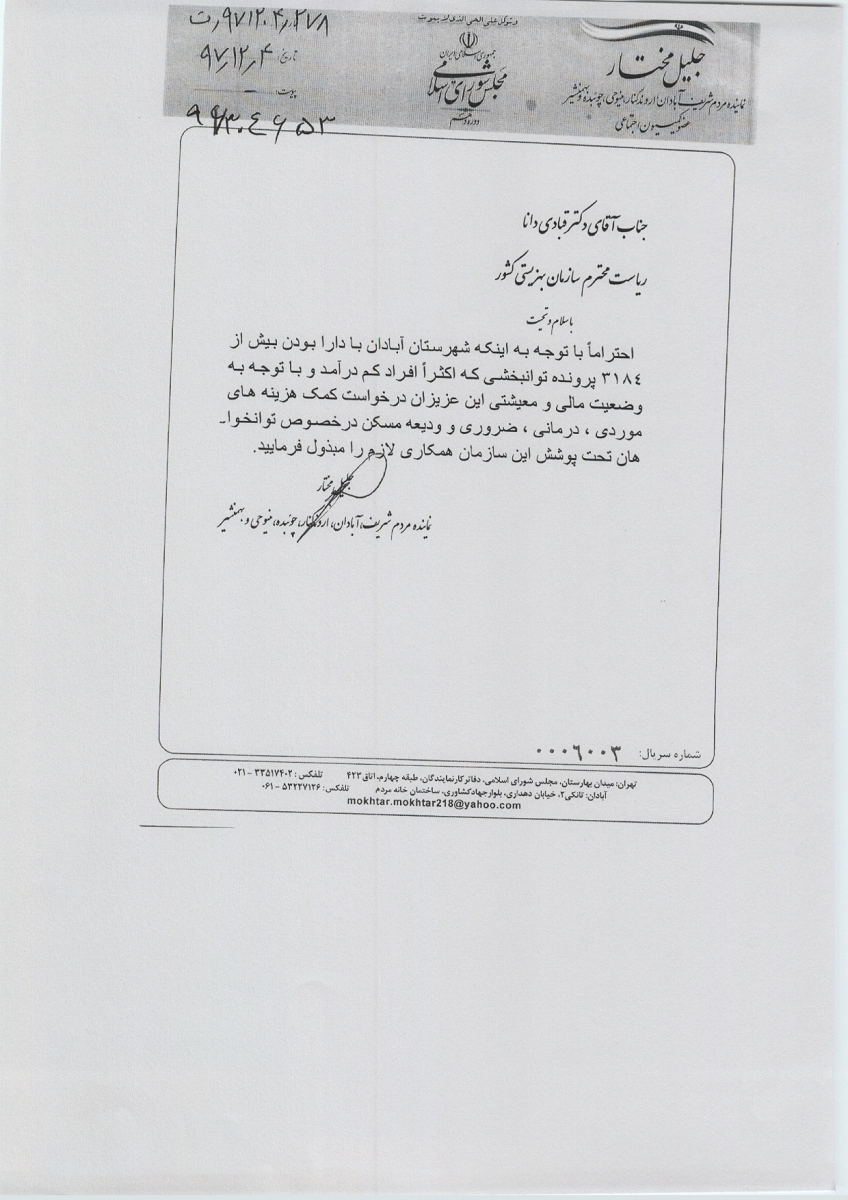 وتوکل علی الحی الذی لا یموت
جمهوری اسلامی ایران
مجلس شورای اسلامی
دوره دهم
جلیل مختار
نماینده مردم شریف آبادان، اروندکنار، مینوحی، چوئبده و بهمنشیر
عضو کمیسیون اجتماعی
۹۷۱۲۰۴٫۲۷۸٫ت
تاریخ: ۹۷٫۱۲٫۴
پیوست: -
جناب آقای دکتر قبادی دانا
ریاست محترم سازمان بهزیستی کشور
با سلام و تحیت
احتراماً با توجه به اینکه شهرستان آبادان با دارا بودن بیش از
۳۱۸٤ پرونده توانبخشی که اکثراً افراد کم درآمد و با توجه به
وضعیت مالی و معیشتی این عزیزان درخواست کمک هزینه های
موردی ، درمانی ، ضروری و ودیعه مسکن درخصوص توانخواـ
هان تحت پوشش این سازمان همکاری لازم را مبذول فرمایید.
جلیل مختار
نماینده مردم شریف، آبادان، اروندکنار، چوئبده، مینوحی و بهمنشیر
شماره سریال: ۰۰۰۶۰۰۳
تهران: میدان بهارستان، مجلس شورای اسلامی، دفاتر کار نمایندگان، طبقه چهارم، اتاق ۴۲۳ تلفکس: ۳۳۵۱۷۴۰۲ - ۰۲۱
آبادان: تانکی۲، خیابان دهداری، بلوار جهادکشاورزی، ساختمان خانه مردم تلفکس: ۵۳۲۲۷۱۲۶ - ۰۶۱
mokhtar.mokhtar218@yahoo.com